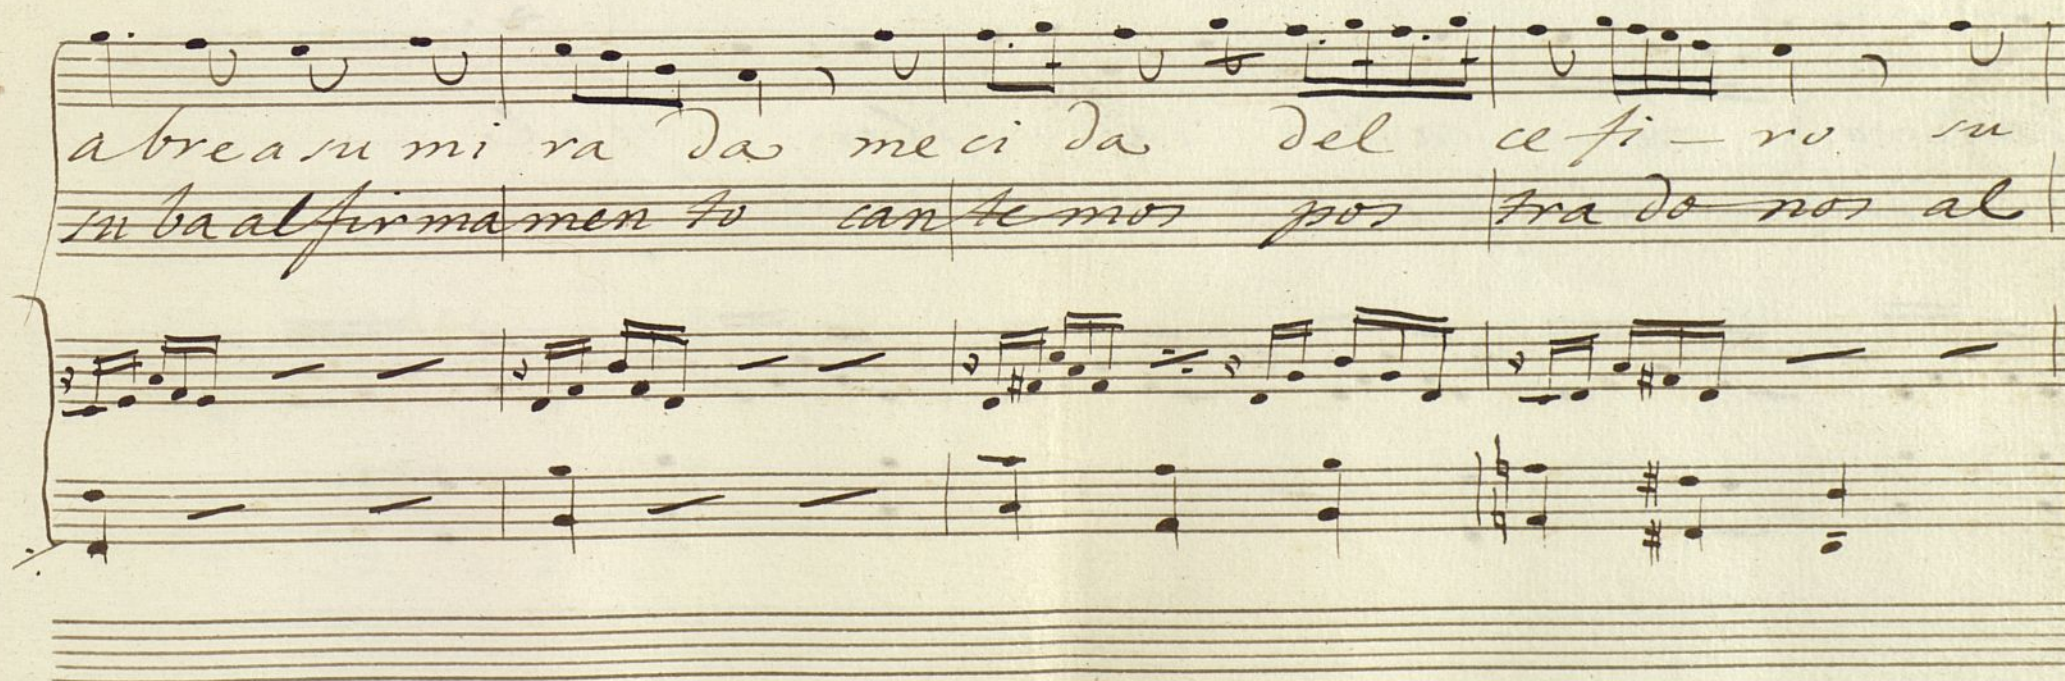 abre a su mi ra da me ci da del ce fi - ro su
su ba al firma men to can te mos pos tra do nos al